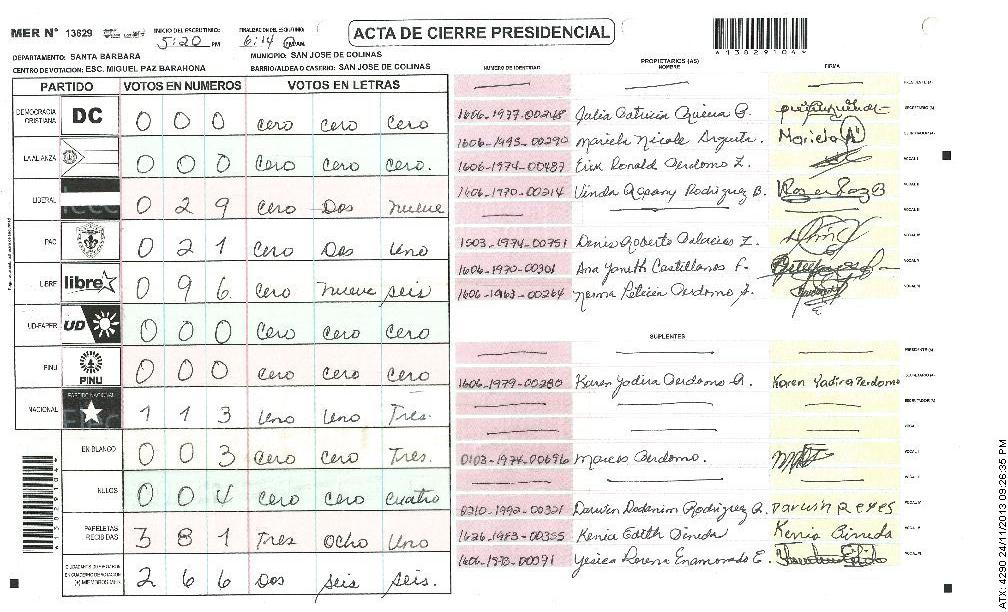 MER N° 13629 INICIO DEL ESCRUTINIO: 5:20 PM FINALIZACION DEL ESCRUTINIO: 6:14 PM
ACTA DE CIERRE PRESIDENCIAL
DEPARTAMENTO: SANTA BARBARA MUNICIPIO: SAN JOSE DE COLINAS
CENTRO DE VOTACION: ESC. MIGUEL PAZ BARAHONA BARRIO/ALDEA O CASERIO: SAN JOSE DE COLINAS
PARTIDO VOTOS EN NUMEROS VOTOS EN LETRAS
DEMOCRACIA CRISTIANA DC 0 0 0 cero cero cero
LA ALIANZA 0 0 0 cero cero cero.
LIBERAL 0 29 cero Dos nueve
PAC 0 2 1 cero Dos uno
LIBRE libre 0 9 6 cero nueve seis
UD-FAPER UD 0 0 0 cero cero cero
PINU PINU 0 0 0 cero cero cero
NACIONAL PARTIDO NACIONAL 1 1 3 uno uno Tres.
EN BLANCO 0 0 3 cero cero Tres.
NULOS 0 0 4 cero cero cuatro
PAPELETAS RECIBIDAS 3 8 1 Tres ocho uno
2 6 6 Dos seis seis.
*13829104*
NUMERO DE IDENTIDAD PROPIETARIOS (AS) NOMBRE FIRMA
PRESIDENTE (A)
1606-1977-00248 Julia Patricia B. SECRETARIO (A)
1606-1993-00290 Mariela Nicole Argueta Mariela A ESCRUTADOR (A)
1606-1974-00487 Erick Ronald Perdomo Z. VOCAL I
1606-1970-00214 Rodriguez B. VOCAL II
VOCAL III
1503-1974-00751 Denis Roberto Palacios Z. VOCAL IV
1606-1970-00301 Ana Yaneth Castellanos F. VOCAL V
1606-1963-00264 Norma Leticia Perdomo Z. VOCAL VI
SUPLENTES
PRESIDENTE (A)
1606-1979-00280 Karen Yadira Perdomo A. Karen Yadira Perdomo SECRETARIO (A)
ESCRUTADOR (A)
VOCAL I
0103-1974-00696 Marcos Perdomo.
0210-1992-00321 Darwin Rodriguez R. Darwin Reyes
1626-1983-00355 Kenia Edith Pineda Kenia Pineda
Yesica Lorena Enamorado E.
ATX: 4290 24/11/2013 09:26:35 PM